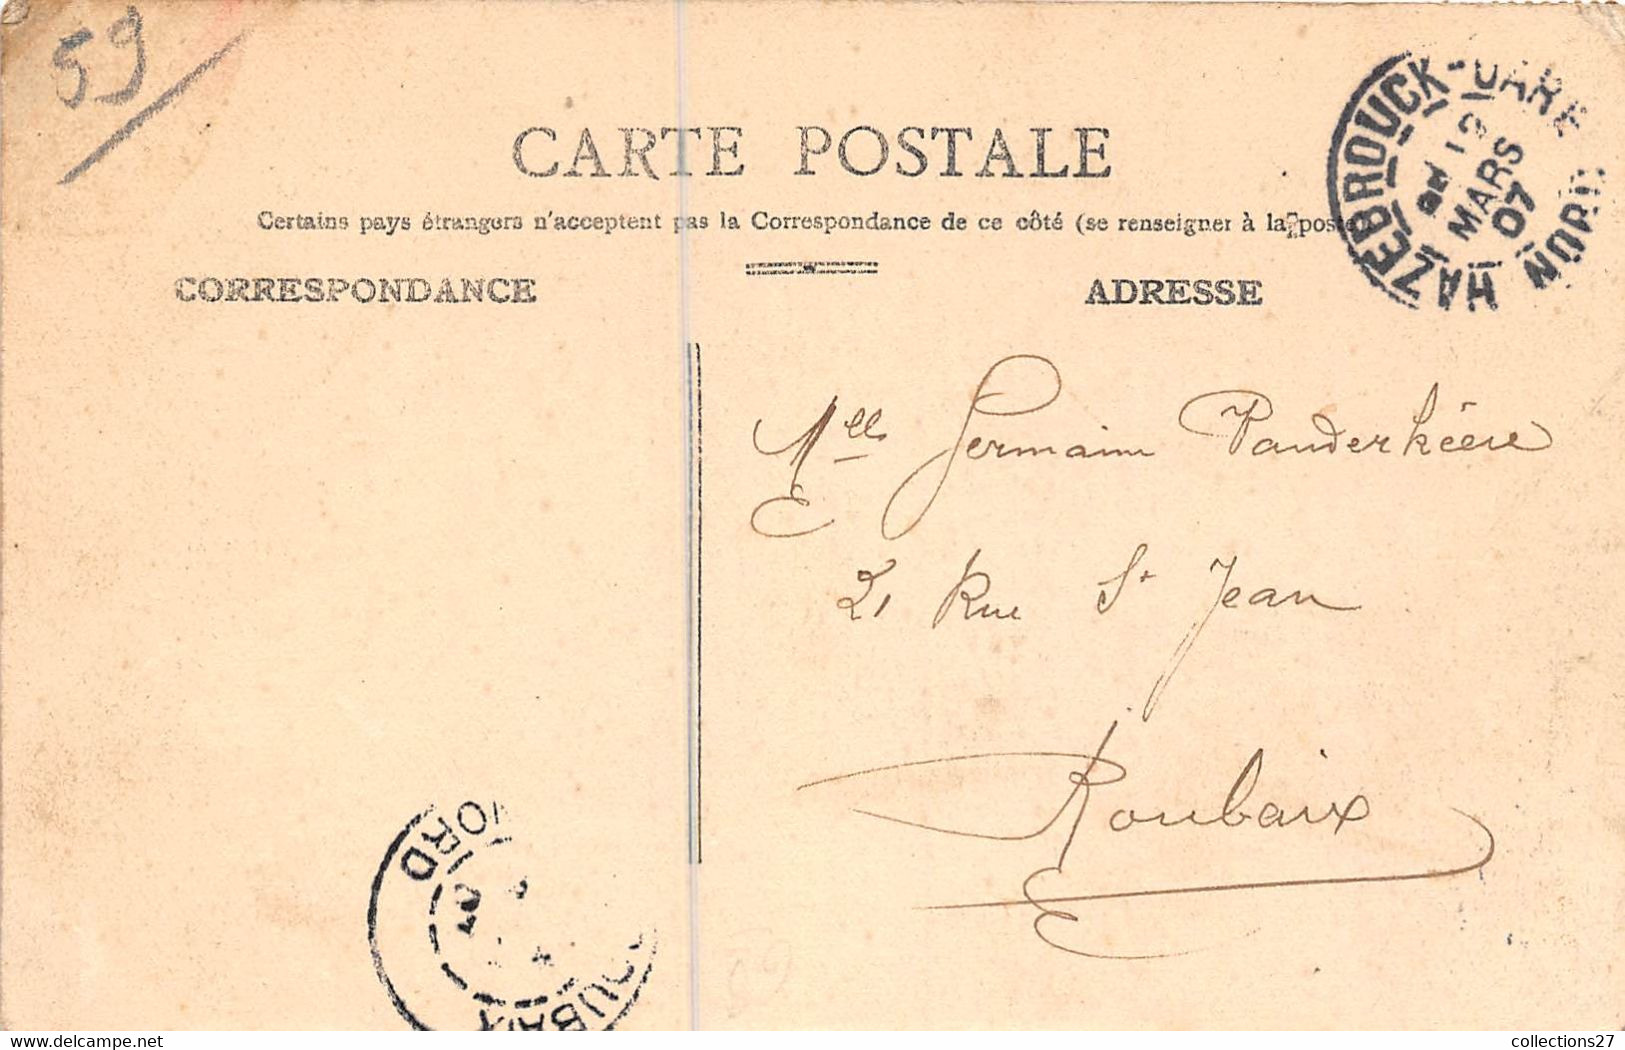 59
CARTE POSTALE
Certains pays étrangers n'acceptent pas la Correspondance de ce côté (se renseigner à la poste)
CORRESPONDANCE
ADRESSE
HAZEBROUCK-GARE NORD
12
MARS
07
Mlle Germaine Vanderhéere
21 Rue St Jean
Roubaix
ROUBAIX NORD
www.delcampe.net
collections27